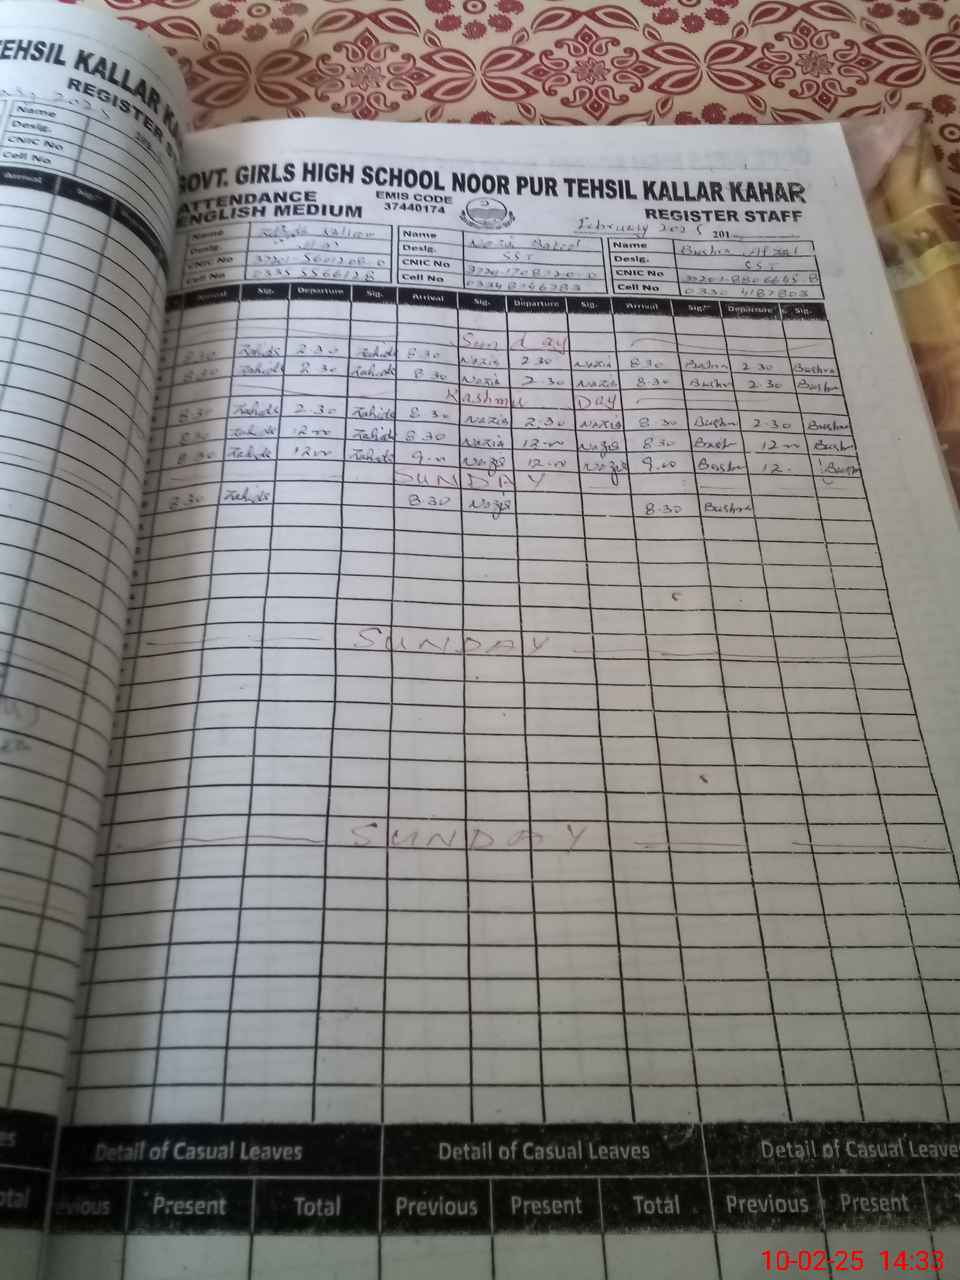 TEHSIL KALLAR KA
REGISTER
Name
Desig.
CNIC No
Cell No
Arrival
GOVT. GIRLS HIGH SCHOOL NOOR PUR TEHSIL KALLAR KAHAR
ATTENDANCE EMIS CODE
ENGLISH MEDIUM 37440174 REGISTER STAFF
February 2025 201
Name Name Name Bushra Afzal
Desig. Desig. SST Desig. SST
CNIC No CNIC No CNIC No
Cell No 0335 5566128 Cell No Cell No 0330 4187803
Arrival Sig. Departure Sig. Arrival Sig. Departure Sig. Arrival Sig. Departure Sig.
Sunday
8.30 Zahida 2.30 Zahida 8.30 Nazia 2.30 Nazia 8.30 Bushra 2.30 Bushra
8.30 Zahida 2.30 Zahida 8.30 Nazia 2.30 Nazia 8.30 Bushra 2.30 Bushra
Kashmir DAY
8.30 Zahida 2.30 Zahida 8.30 Nazia 2.30 Nazia 8.30 Bushra 2.30 Bushra
8.30 Zahida 12.00 Zahida 8.30 Nazia 12.00 Nazia 8.30 Bushra 12.00 Bushra
8.30 Zahida 12.00 Zahida 9.00 Nazia 12.00 Nazia 9.00 Bushra 12. Bushra
SUNDAY
8.30 Zahida 8.30 Nazia 8.30 Bushra
SUNDAY
SUNDAY
Detail of Casual Leaves Detail of Casual Leaves Detail of Casual Leaves
Previous Present Total Previous Present Total Previous Present
10-02-25 14:33